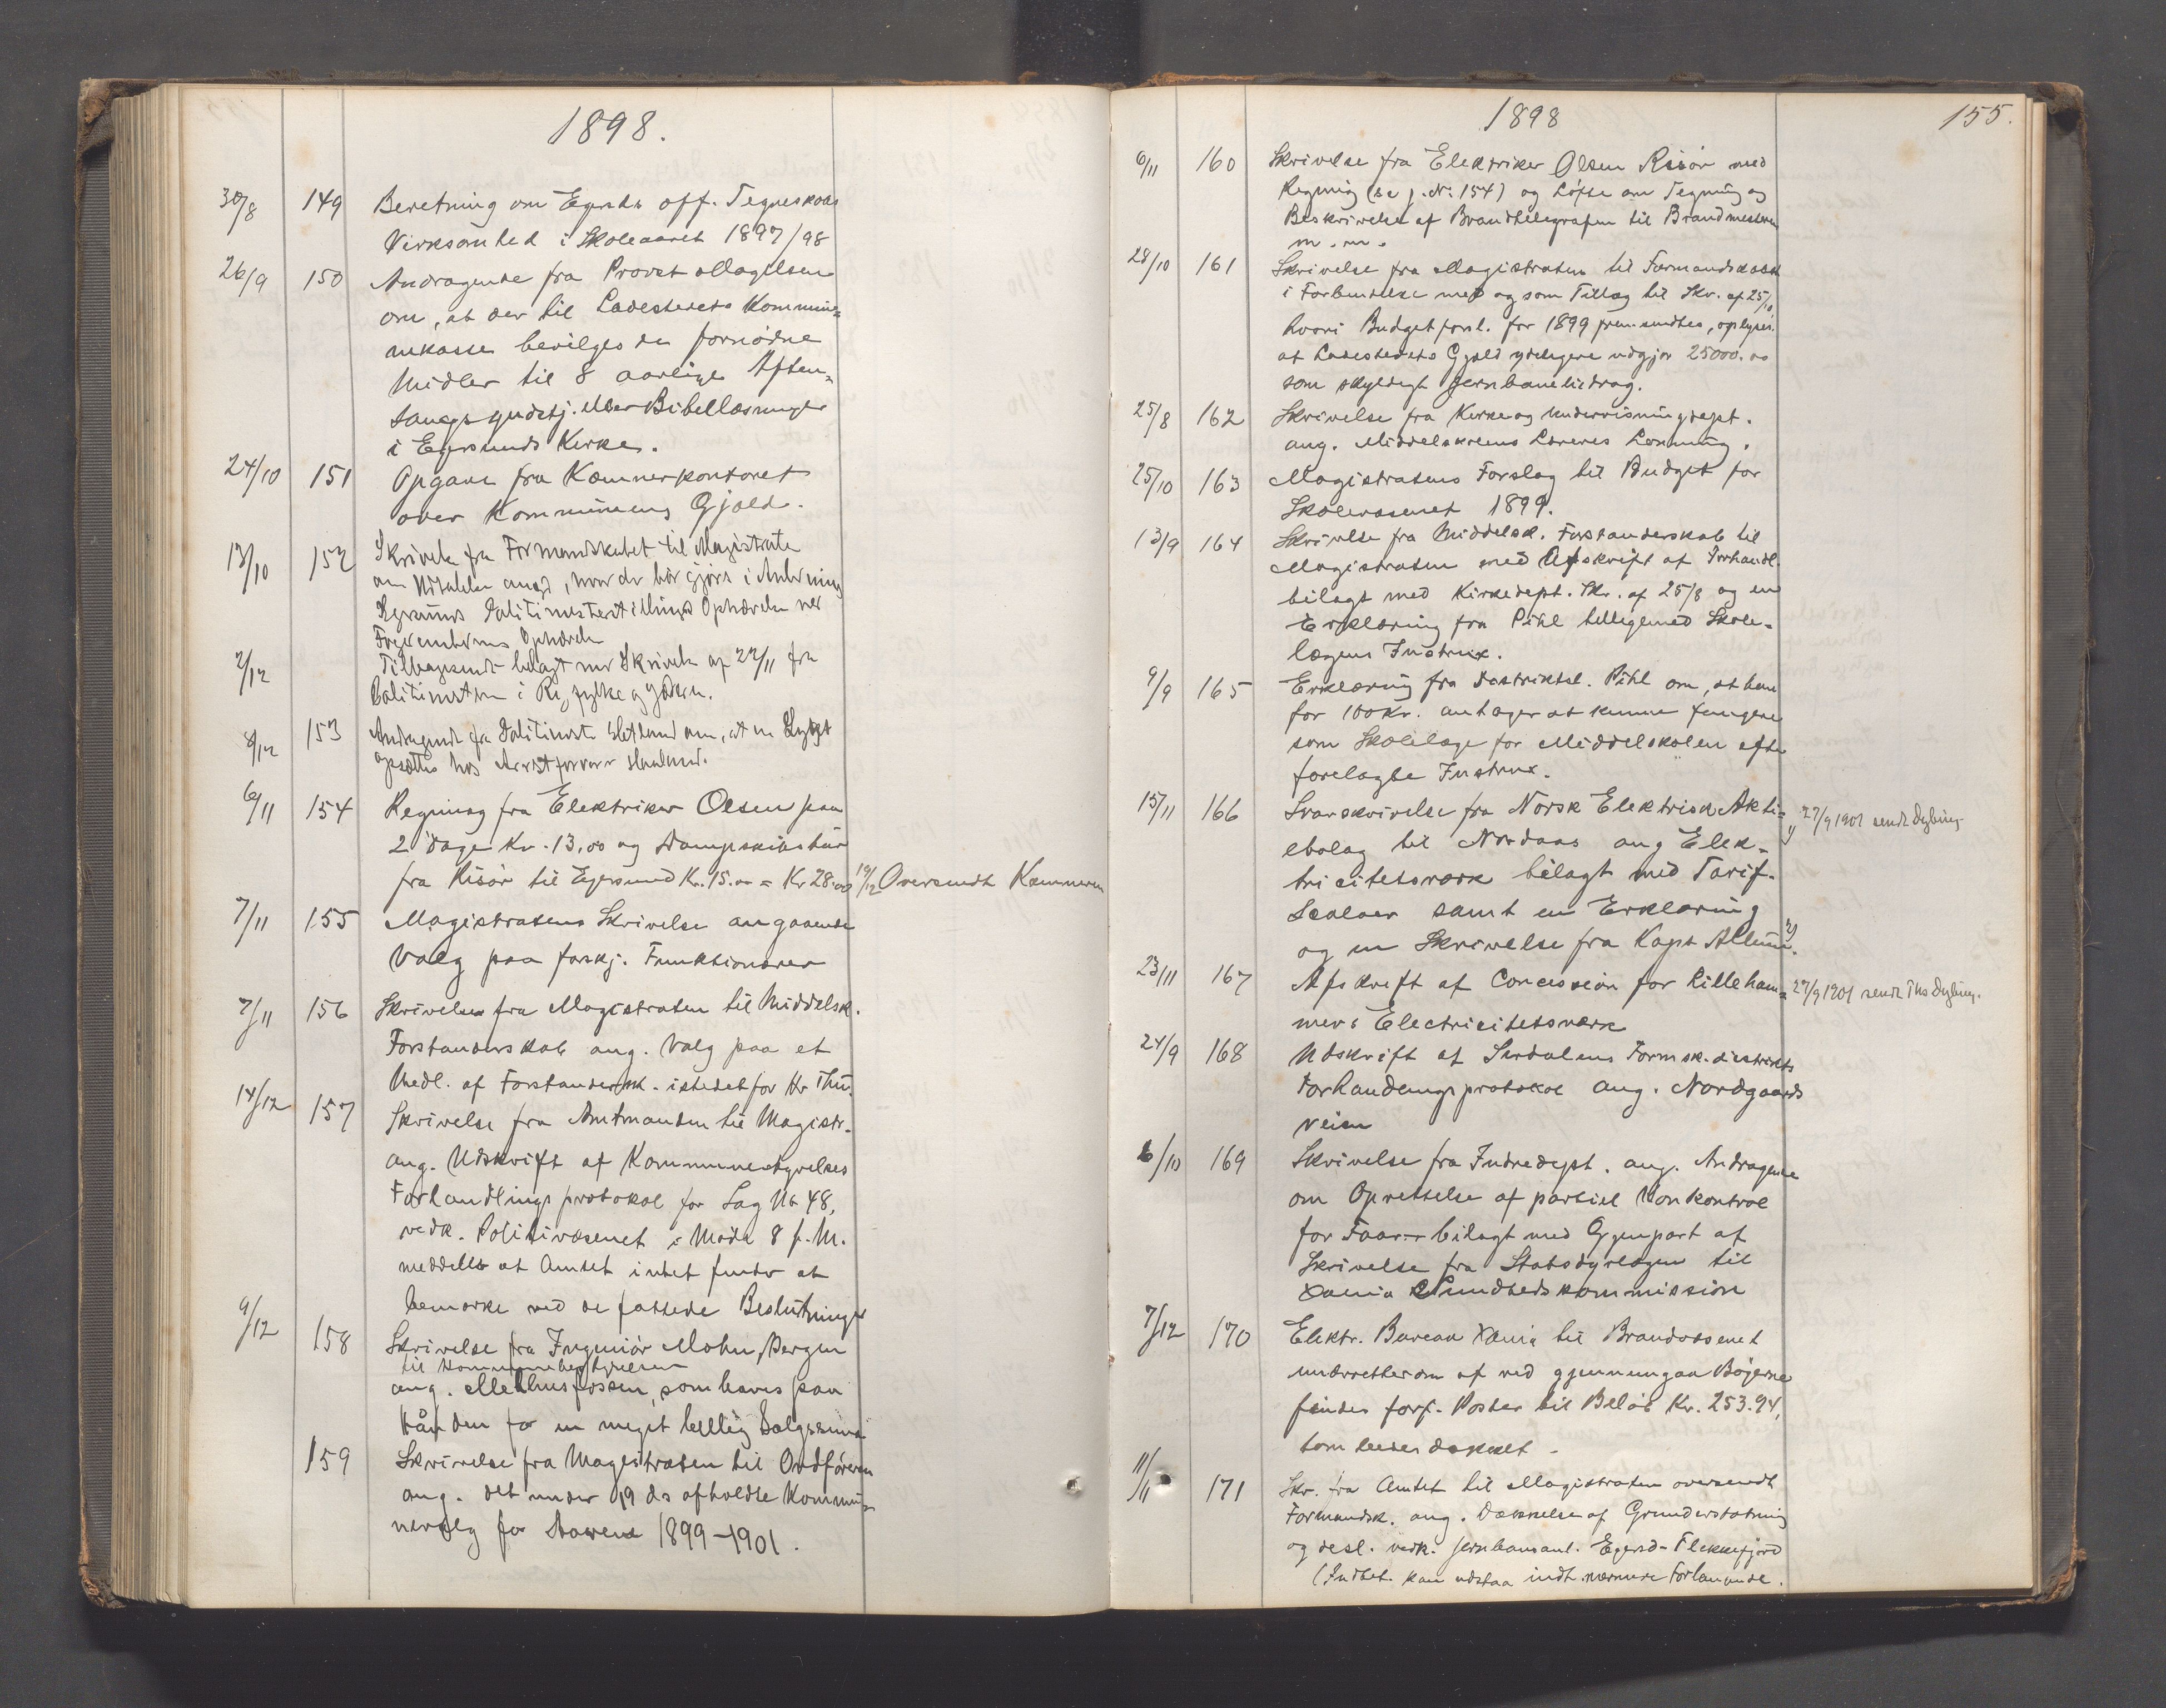 1898.
30/8 149 Beretning om Egersds off. Tegneskoles
Virksomhed i Skoleaaret 1897/98
26/9 150 Andragende fra Provst Magelsen
om, at der til Ladestedets Kommu-
nekasse bevilges de fornødne
Midler til 8 aarlige Aften-
sangsgudstj. eller Bibellæsninger
i Egersunds Kirke.
24/10 151 Opgave fra Kæmnerkontoret
over Kommunens Gjæld.
13/10 152 Skrivelse fra Formandskabet til Magistraten
om Udtalelse angd, hvad der bør gjøres i Anledning
Egersunds Politimesterstillings Ophævelse ved
Fogedembedernes Ophævelse
2/12 Tilbagesendt bilagt med Skrivelse af 22/11 fra
Politimesteren i Ryfylke og Jæderen.
8/12 153 Andragende fra Politimester Hetland om, at en Lygt
opsættes hos Arrestforvarer Haaland.
6/11 154 Regning fra Elektriker Olsen paa
2 Dage Kr. 13,00 og Dampskibstur
fra Risør til Egersund Kr. 15.00 = Kr 28.00 19/12 Oversendt Kæmneren
7/11 155 Magistratens Skrivelse angaaende
Valg paa forskj. Funktionærer
7/11 156 Skrivelse fra Magistraten til Middelsk.
Forstanderskab ang. Valg paa et
Medl. af Forstandersk. istedetfor Hr Thu.
14/12 157 Skrivelse fra Amtmanden til Magistr.
ang. Udskrift af Kommunestyrelses
Forhandlings protokol for Sag No 48,
vedk. Politivæsenet i Møde 8 f. M.
meddeler at Amtet intet finder at
bemærke ved de fattede Beslutninger
9/12 158 Skrivelse fra Ingeniør Mohn, Bergen
til Kommunebestyrelsen
ang. Mellhusfossen, som haves paa
Hånden for en meget billig Salgssum
159 Skrivelse fra Magistraten til Ordføreren
ang. det under 19 ds afholdte Kommu-
nevalg for Aarene 1899-1901.
1898
155.
6/11 160 Skrivelse fra Elektriker Olsen Risør med
Regning (se j. No 154) og Løfte om Tegning og
Beskrivelse af Brandtelegrafen til Brandmesteren
m. m.
28/10 161 Skrivelse fra Magistraten til Formandskabet
i Forbindelse med og som Tillæg til Skr. af 25/10
hvori Budgetforsl. for 1899 fremsendtes, oplyses
at Ladestedets Gjæld yderligere udgjør 25000.00
som skyldigt Jernbanebidrag.
25/8 162 Skrivelse fra Kirke og Undervisningsdept.
ang. Middelskolens Læreres Lønning.
25/10 163 Magistratens Forslag til Budget for
Skolevæsenet 1899.
13/9 164 Skrivelse fra Middelsk. Forstanderskab til
Magistraten med Afskrift af Forhandl.
bilagt med Kirkedept. Skr. af 25/8 og en
Erklæring fra Pihl tilligemed Skole-
lægens Instrux.
9/9 165 Erklæring fra Distriktsl. Pihl om, at han
for 100 Kr. antager at kunne fungere
som Skolelæge for Middelskolen efter
forelagte Instrux.
15/11 166 Svarskrivelse fra Norsk Elektrisk Akti- 1) 27/9 1901 sendt Dybing
ebolag til Nordaas ang Elek-
tricitetsværk bilagt med Tarif.
Scalaer samt en Erklæring
og en Skrivelse fra Kapt Allum. 2)
23/11 167 Afskrift af Concession for Lilleham- 27/9 1901 sendt Ths Dybing.
mers Electricitetsværk
24/9 168 Udskrift af Sirdalens Formsk.distrikts
Forhandlingsprotokol ang. Nordgaards
veien
6/10 169 Skrivelse fra Indredept. ang. Andragende
om Oprettelse af partiel Vonkontrol
for Faar - bilagt med Gjenpart af
Skrivelse fra Statsdyrlægen til
Xania Sundhedskommission
7/12 170 Elektr. Bureau Xania til Brandvæsenet
underretter om at ved gjennemgaa Bøgerne
findes forf. Poster til Beløb Kr. 253.94,
som bedes dækket -
11/11 171 Skr. fra Amtet til Magistraten oversendt
Formandsk. ang. Dækkelse af Grunderstatning
og desl. vedk. Jernbaneanl. Egersd-Flekkefjord
(Indbet. kan udstaa indt. nærmere Forlangende.